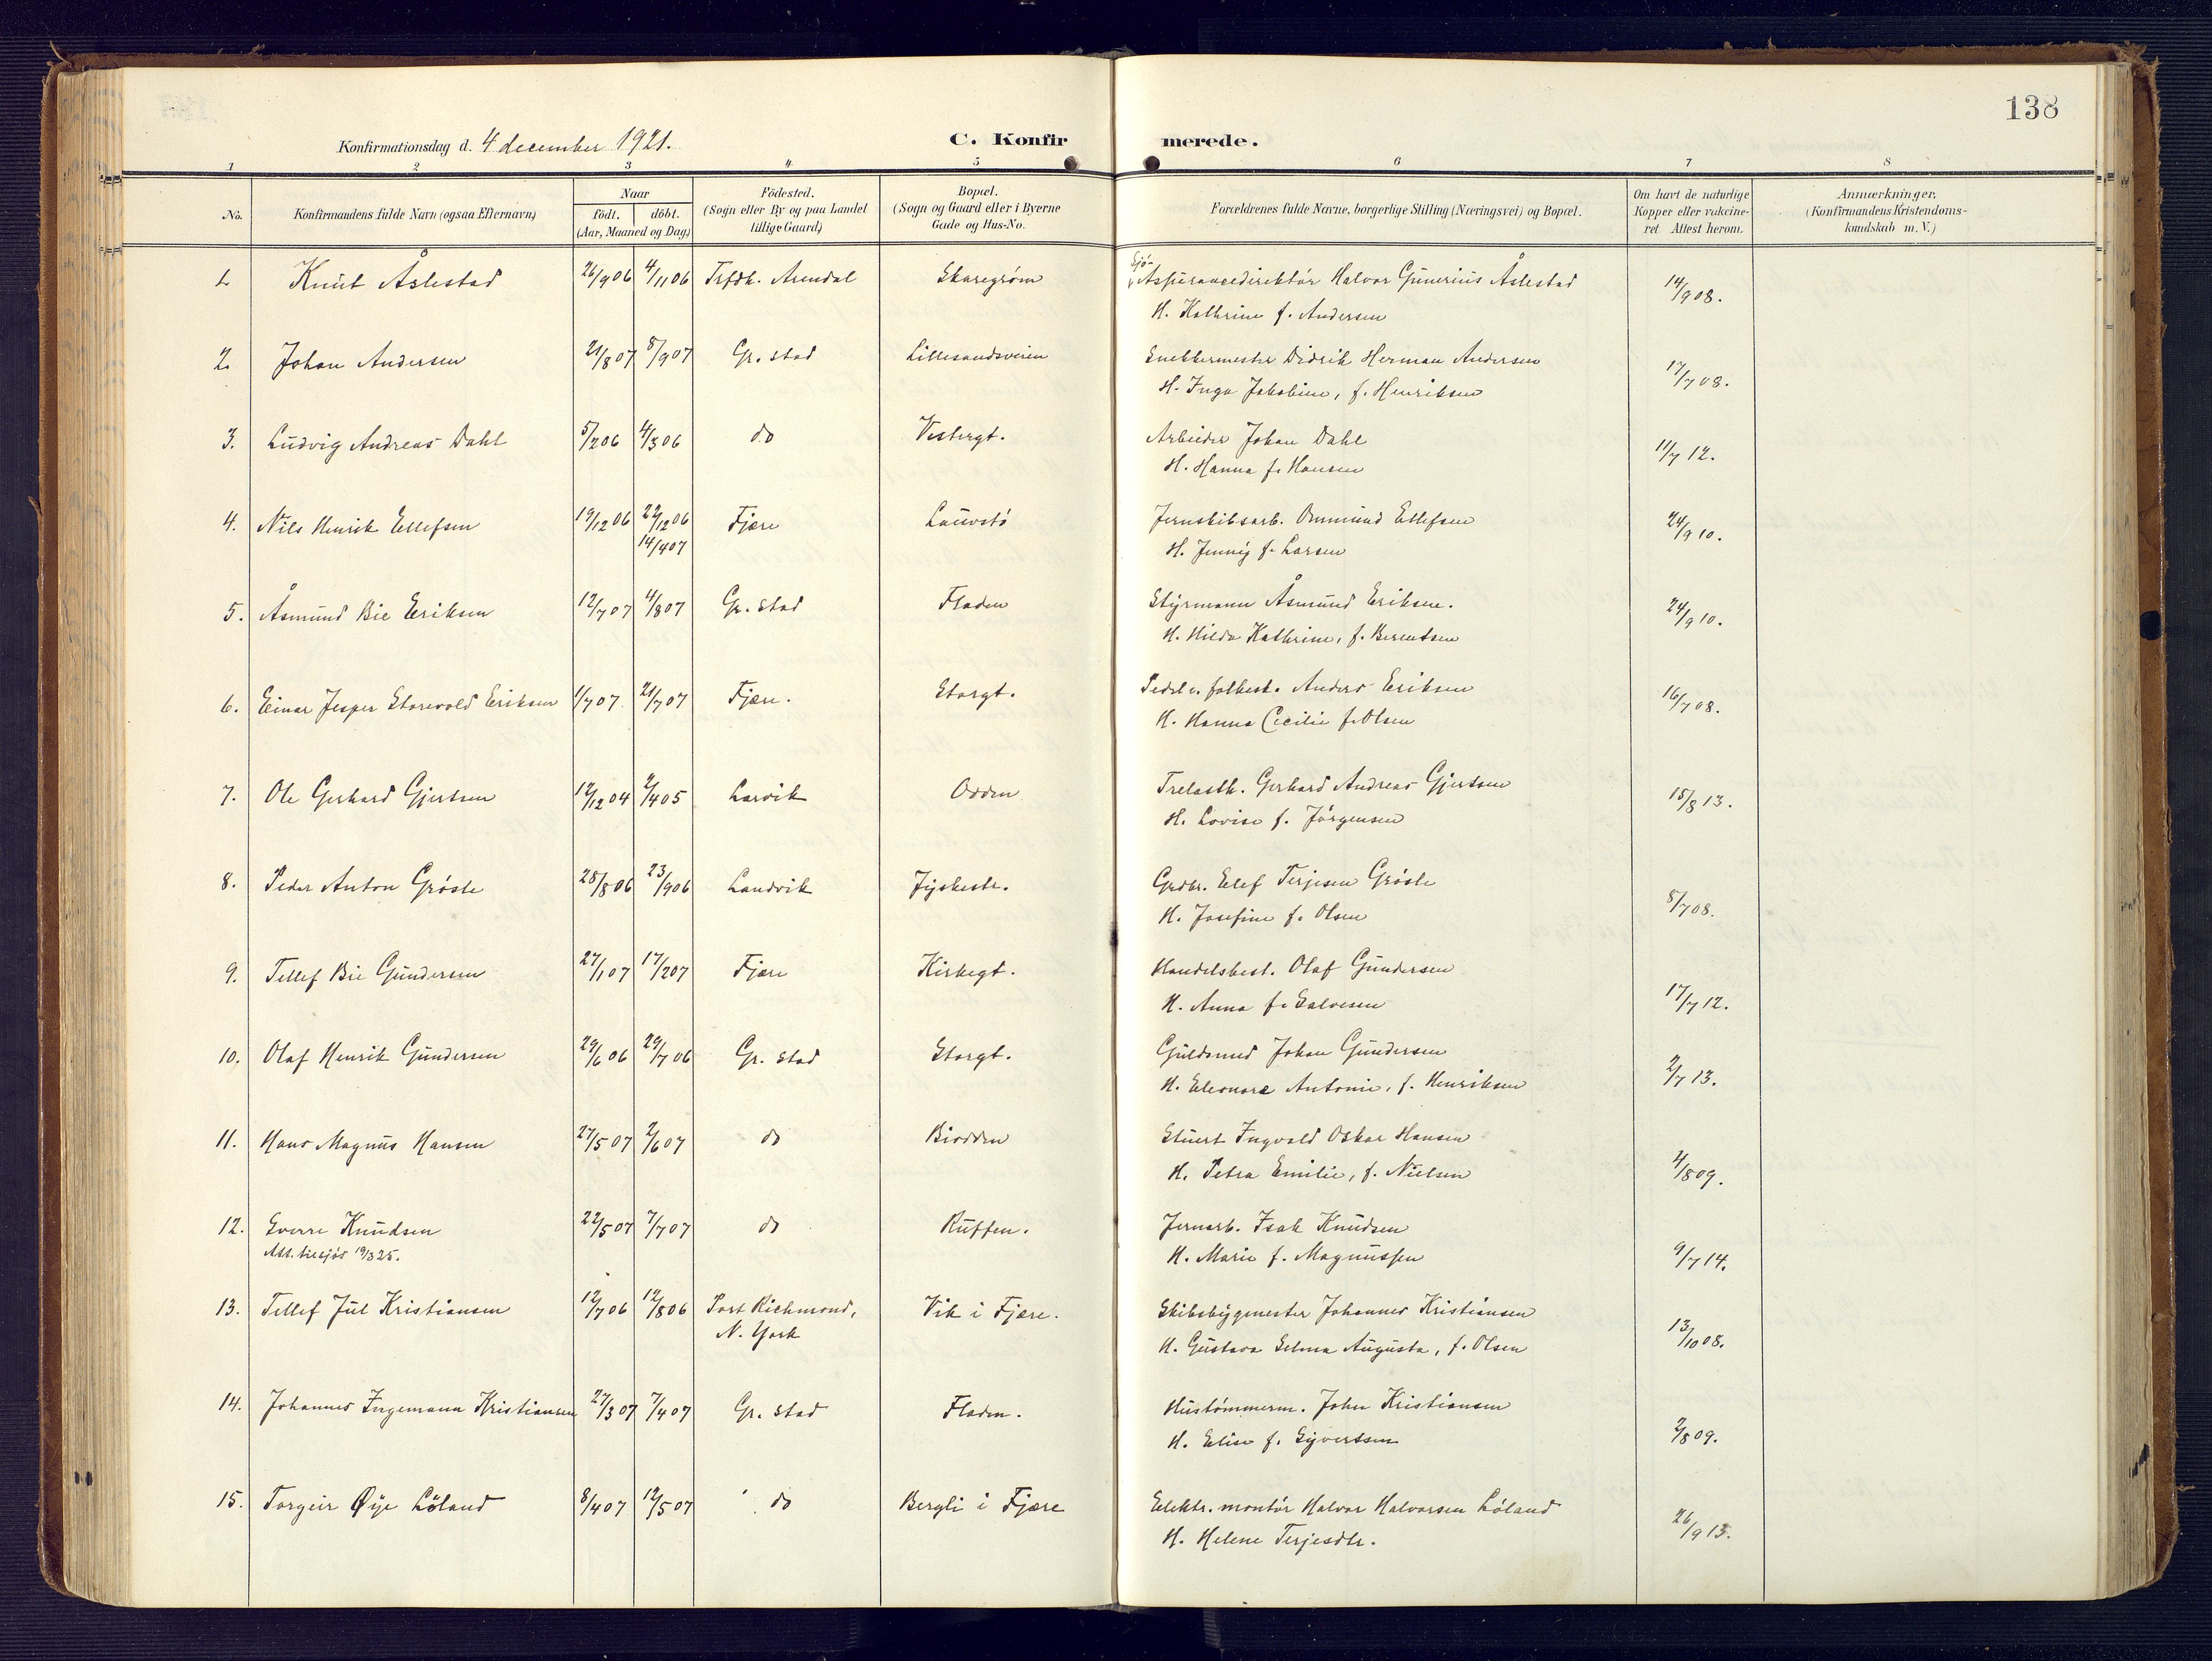 138
Konfirmationsdag d. 4 december 1921.
C. Konfirmerede.
1 2 3 4 5 6 7 8
No. Konfirmandens fulde Navn (ogsaa Efternavn) Naar födt. döbt. (Aar, Maaned og Dag) Födested. (Sogn eller By og paa Landet tillige Gaard) Bopæl. (Sogn og Gaard eller i Byerne Gade og Hus-No. Forældrenes fulde Navne, borgerlige Stilling (Næringsvei) og Bopæl. Om havt de naturlige Kopper eller vakcineret. Attest herom. Anmærkninger. (Konfirmandens Kristendomskundskab m. V.)
1. Knut Åslestad 26/9 06 4/11 06 Trfdk. Arendal Skaregrøm Sjö-Assurancedirektör Halvor Gunerius Åslestad 14/9 08.
H. Kathrine f. Andersen
2. Johan Andersen 21/8 07 8/9 07 Gr.stad Lillesandsveien Snekkermester Didrik Herman Andersen 17/7 08.
H. Inga Jakobine, f. Henriksen
3. Ludvig Andreas Dahl 5/2 06 4/3 06 do Vestergt. Arbeider Johan Dahl 11/7 12.
H. Hanna f. Hansen
4. Nils Henrik Ellefsen 19/12 06 22/12 06 Fjære Lauvstö Jernskibsarb. Ommund Ellefsen 24/9 10.
14/4 07 H. Jenny f. Larsen
5. Åsmund Bie Eriksen 12/7 07 4/8 07 Gr.stad Fladen Styrmann Åsmund Eriksen. 24/9 10.
H. Hilda Kathrine, f. Berentsen
6. Einar Jesper Storevold Eriksen 1/7 07. 21/7 07 Fjære. Storgt. Pedel v. folkesk. Anders Eriksen 16/7 08.
H. Hanna Cecilie f. Olsen
7. Ole Gerhard Gjertsen 12/12 04 2/4 05 Larvik Odden Trelasth. Gerhard Andreas Gjertsen 15/8 13.
H. Lovise f. Jörgensen
8. Peder Anton Gröste 28/8 06 23/9 06 Landvik Jyskestr. Grdbr. Elef Terjesen Gröste 8/7 08.
H. Josefine f. Olsen
9. Tellef Bie Gundersen 27/1 07 17/2 07 Fjære Kirkegt. Handelsbest. Olaf Gundersen 17/7 12.
H. Anna f. Salvesen
10. Olaf Henrik Gundersen 29/6 06 29/7 06 Gr.stad Storgt. Guldsmed Johan Gundersen 2/7 13.
H. Eleonore Antonie, f. Henriksen
11. Hans Magnus Hansen 27/5 07 2/6 07 do Biodden Stuert Ingvald Oskar Hansen 4/8 09.
H. Petra Emilie, f. Nielsen
12. Sverre Knudsen 22/5 07 7/7 07 do Kuffen. Jernarb. Isak Knudsen
Att. tilsjös 19/3 25. H. Marie f. Magnussen 9/7 14.
13. Tellef Jul Kristiansen 12/7 06 12/8 06 Port Richmond, Vik i Fjære. Skibsbygmester Johannes Kristiansen
N. York H. Gustava Selma Augusta, f. Olsen 13/10 08.
14. Johannes Ingemann Kristiansen 27/3 07 7/4 07 Gr.stad Fladen. Hustömmerm. John Kristiansen
H. Elise f. Syvertsen 2/8 09.
15. Torgeir Øye Löland 8/4 07 12/5 07 do Bergli i Fjære Elektr. montör Halvor Halvorsen Löland 26/9 13.
H. Helene Terjesdtr.